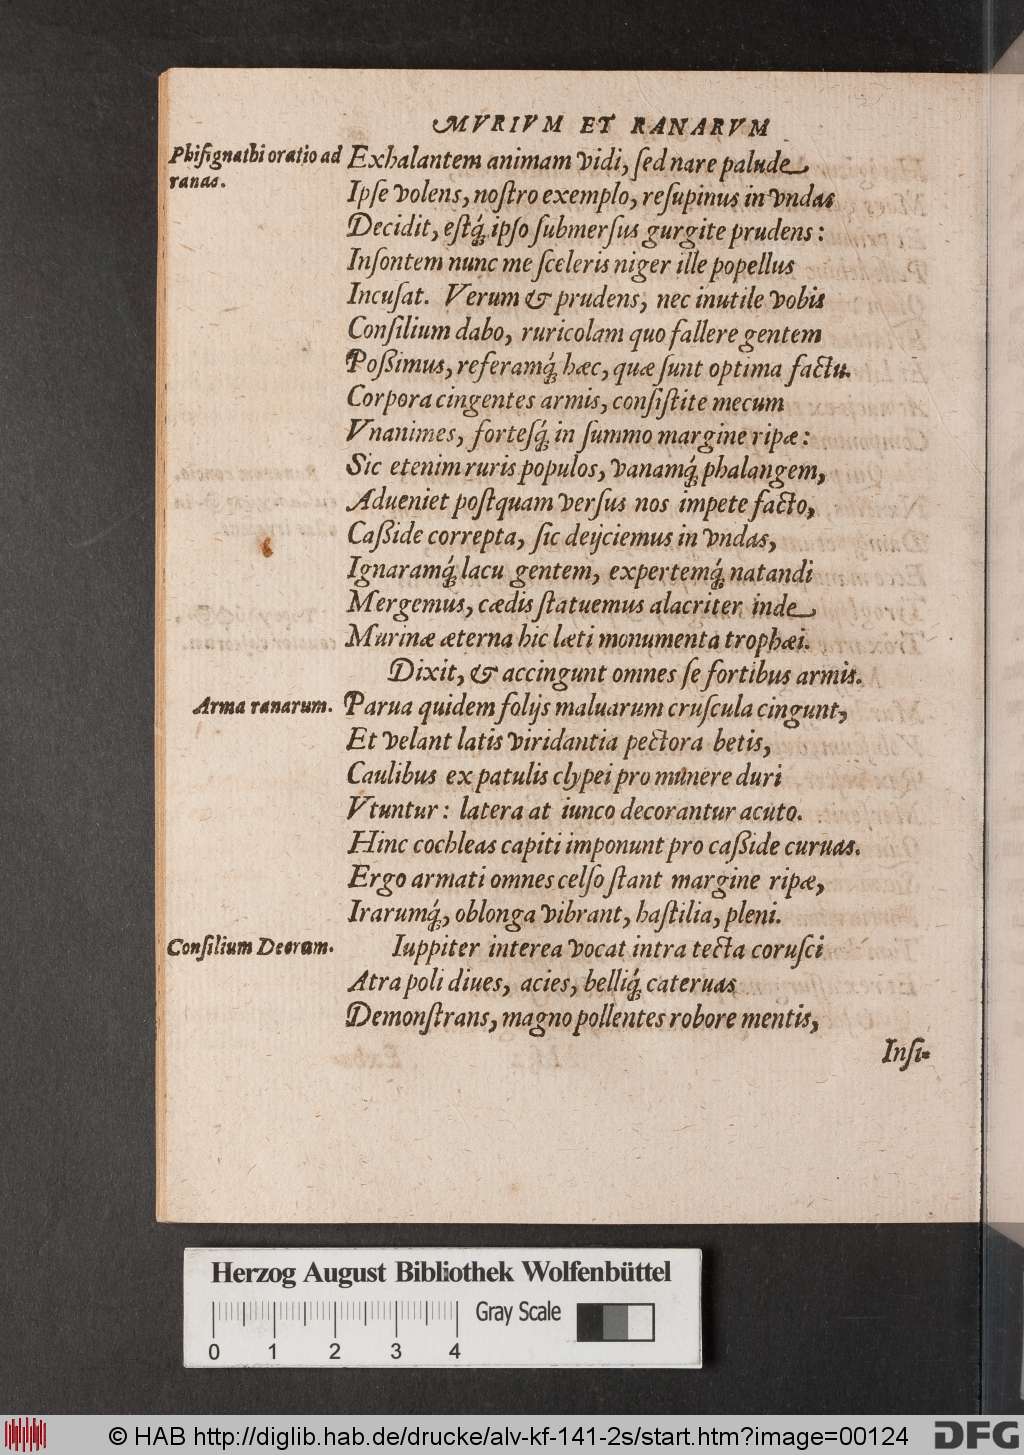 MVRIVM ET RANARVM
Phisignathi oratio ad
ranas.
Exhalantem animam vidi, sed nare palude
Ipse volens, nostro exemplo, resupinus in vndas
Decidit, estq́; ipso submersus gurgite prudens:
Insontem nunc me sceleris niger ille popellus
Incusat. Verum & prudens, nec inutile vobis
Consilium dabo, ruricolam quo fallere gentem
Poßimus, referamq́; hæc, quæ sunt optima factu.
Corpora cingentes armis, consistite mecum
Vnanimes, fortesq́; in summo margine ripæ:
Sic etenim ruris populos, vanamq́; phalangem,
Adueniet postquam versus nos impete facto,
Caßide correpta, sic deijciemus in vndas,
Ignaramq́; lacu gentem, expertemq́; natandi
Mergemus, cædis statuemus alacriter inde
Murinæ æterna hic læti monumenta trophæi.
Dixit, & accingunt omnes se fortibus armis.
Arma ranarum.
Parua quidem folijs maluarum cruscula cingunt,
Et velant latis viridantia pectora betis,
Caulibus ex patulis clypei pro munere duri
Vtuntur: latera at iunco decorantur acuto.
Hinc cochleas capiti imponunt pro caßide curuas.
Ergo armati omnes celso stant margine ripæ,
Irarumq́;, oblonga vibrant, hastilia, pleni.
Consilium Deorum.
Iuppiter interea vocat intra tecta corusci
Atra poli diues, acies, belliq́; cateruas
Demonstrans, magno pollentes robore mentis,
Insi-
Herzog August Bibliothek Wolfenbüttel
Gray Scale
0 1 2 3 4
© HAB http://diglib.hab.de/drucke/alv-kf-141-2s/start.htm?image=00124
DFG